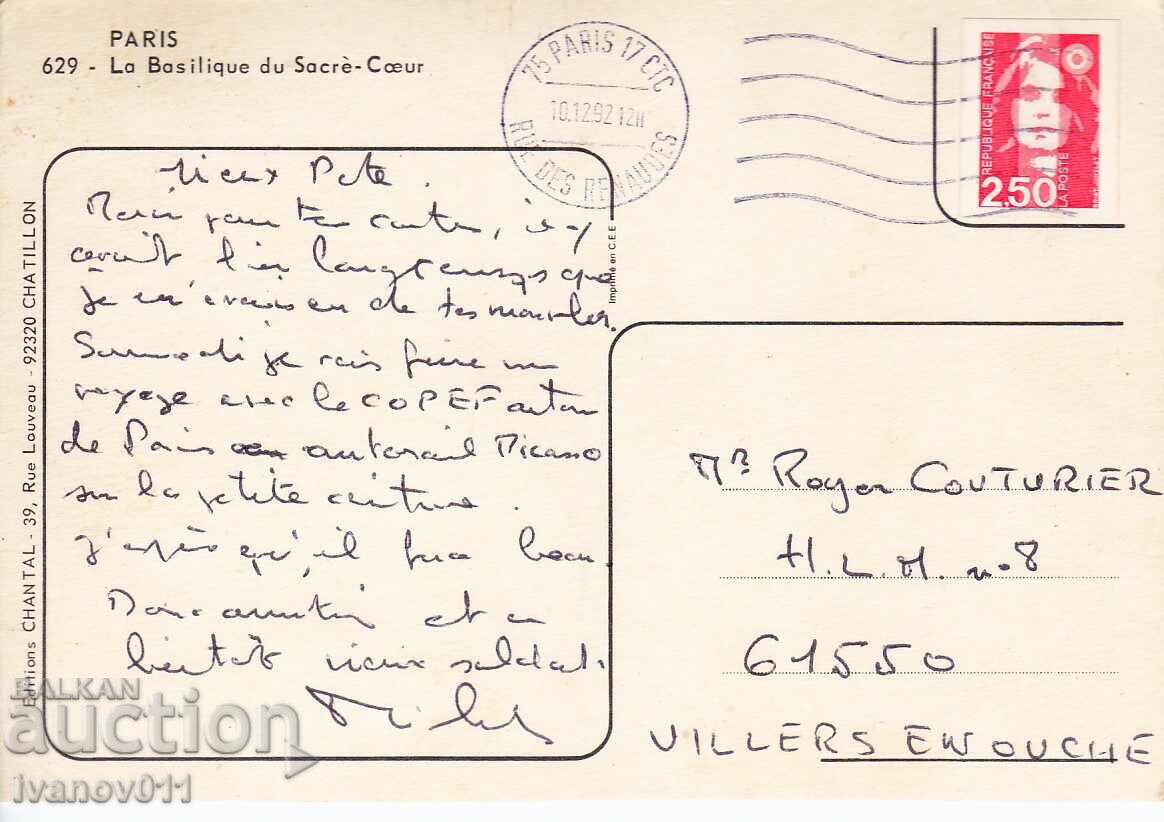 PARIS
629 - La Basilique du Sacrè-Cœur
75 PARIS 17 CTC
10.12.92 12H
RUE DES RENAUDES
REPUBLIQUE FRANÇAISE
2,50
LA POSTE
Editions CHANTAL - 39, Rue Louveau - 92320 CHATILLON
Imprimé en C.E.E
Vieux Pote.
Merci pour tes cartes, il y
avait bien longtemps que
je n'avais eu de tes nouvelles.
Samedi je vais faire un
voyage avec le COPEF autour
de Paris en autorail Picasso
sur la petite ceinture.
J'espère qu'il fera beau.
Bonne et à
bientôt vieux soldat.
Michel
Mr Roger COUTURIER
H.L.M. n°8
61550
VILLERS EN OUCHE
BALKAN
auction
ivanov011